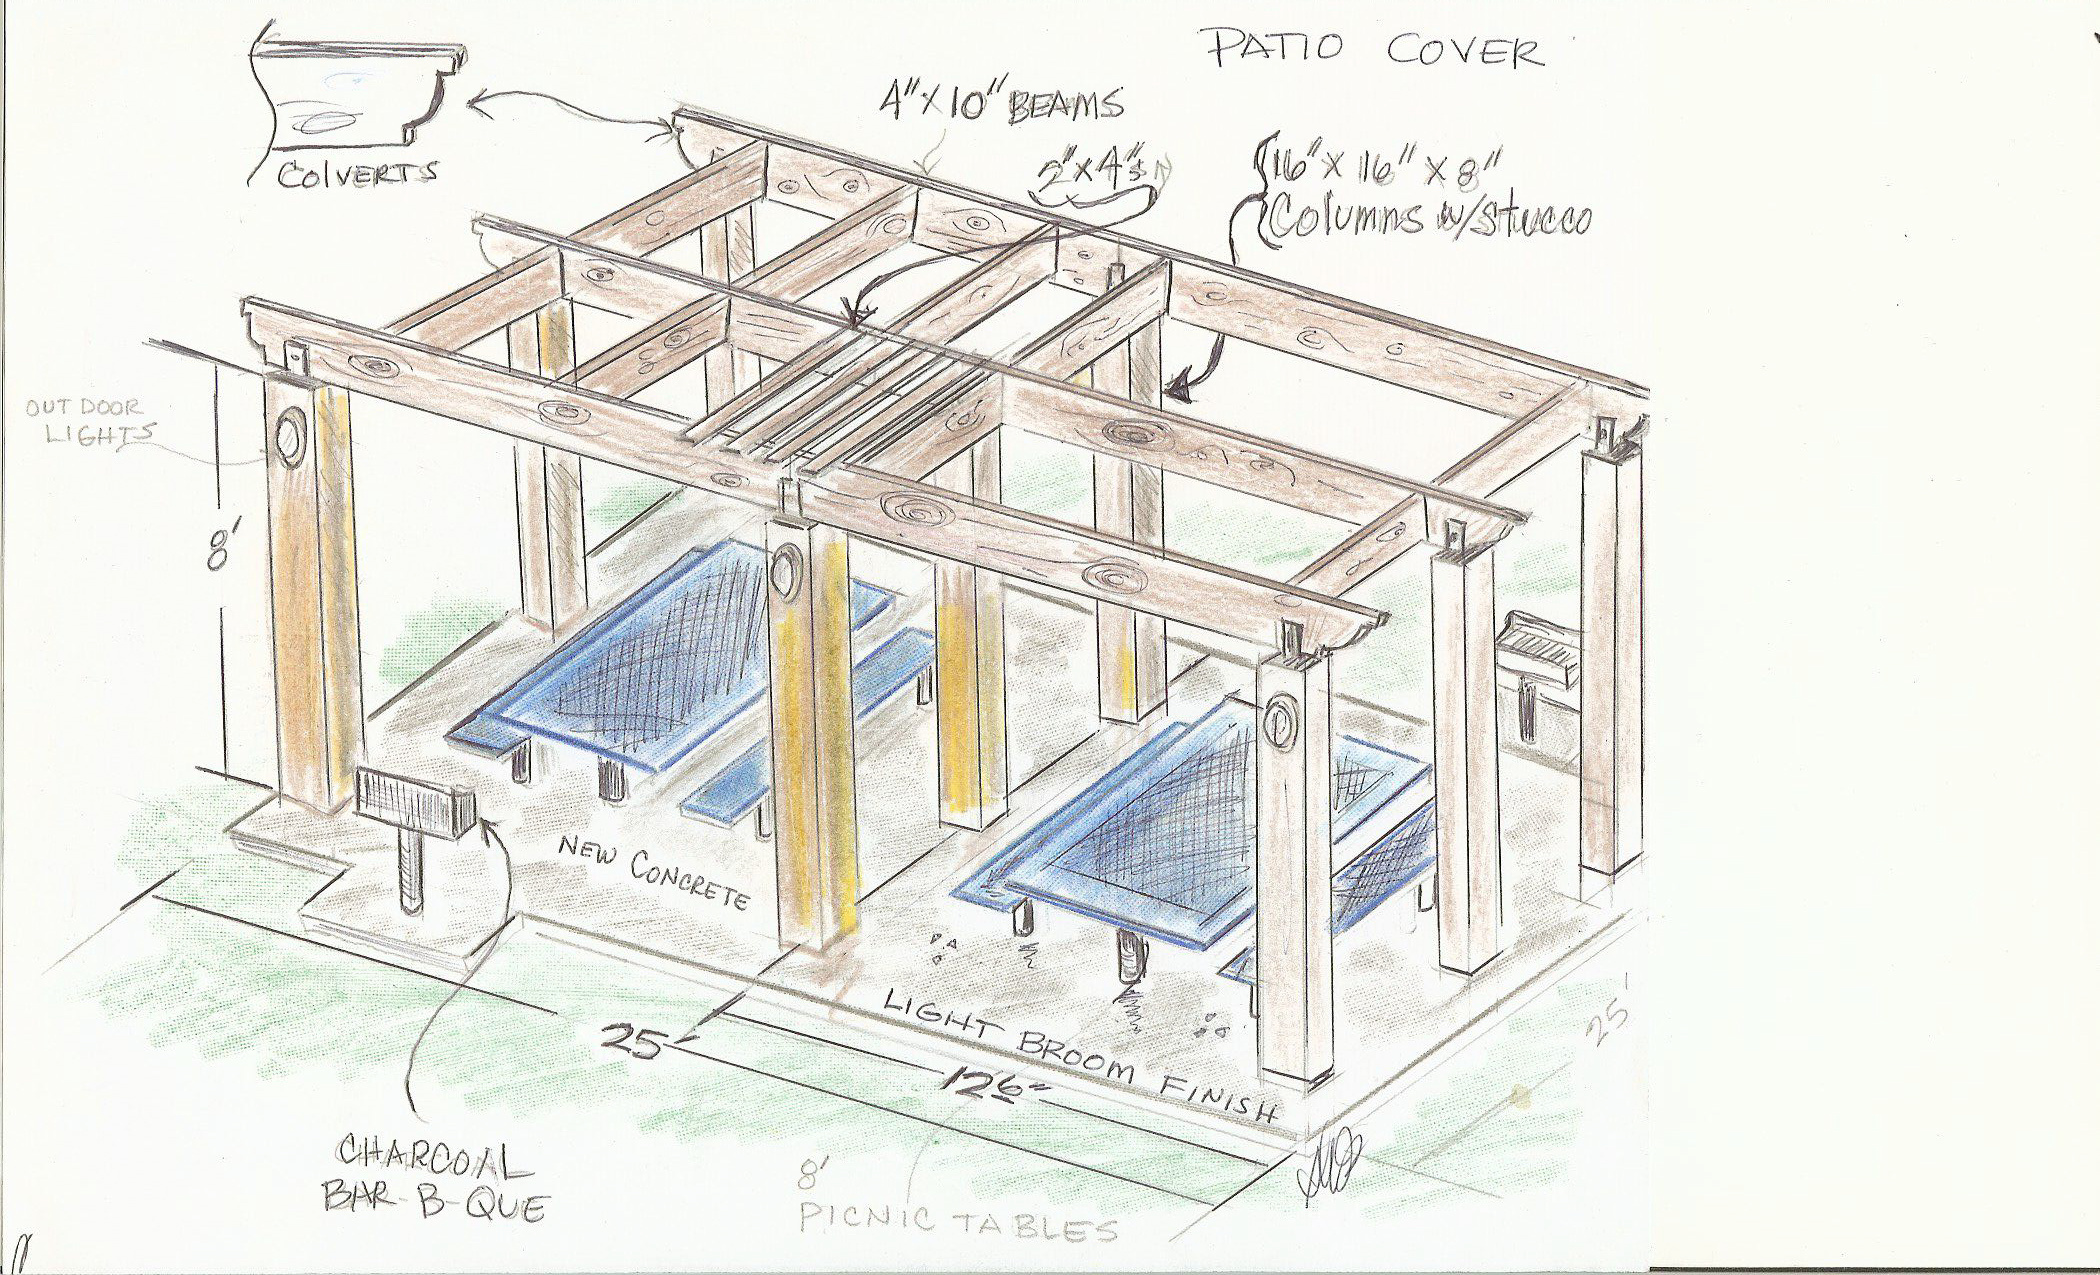 PATIO COVER
4"X10" BEAMS
2"X4"s
16" X 16" X 8"
Columns w/stucco
ColVERTS
OUTDOOR
LIGHTS
8'
NEW CONCRETE
LIGHT BROOM FINISH
25'
25
126"
CHARCOAL
BAR-B-QUE
8'
PICNIC TABLES